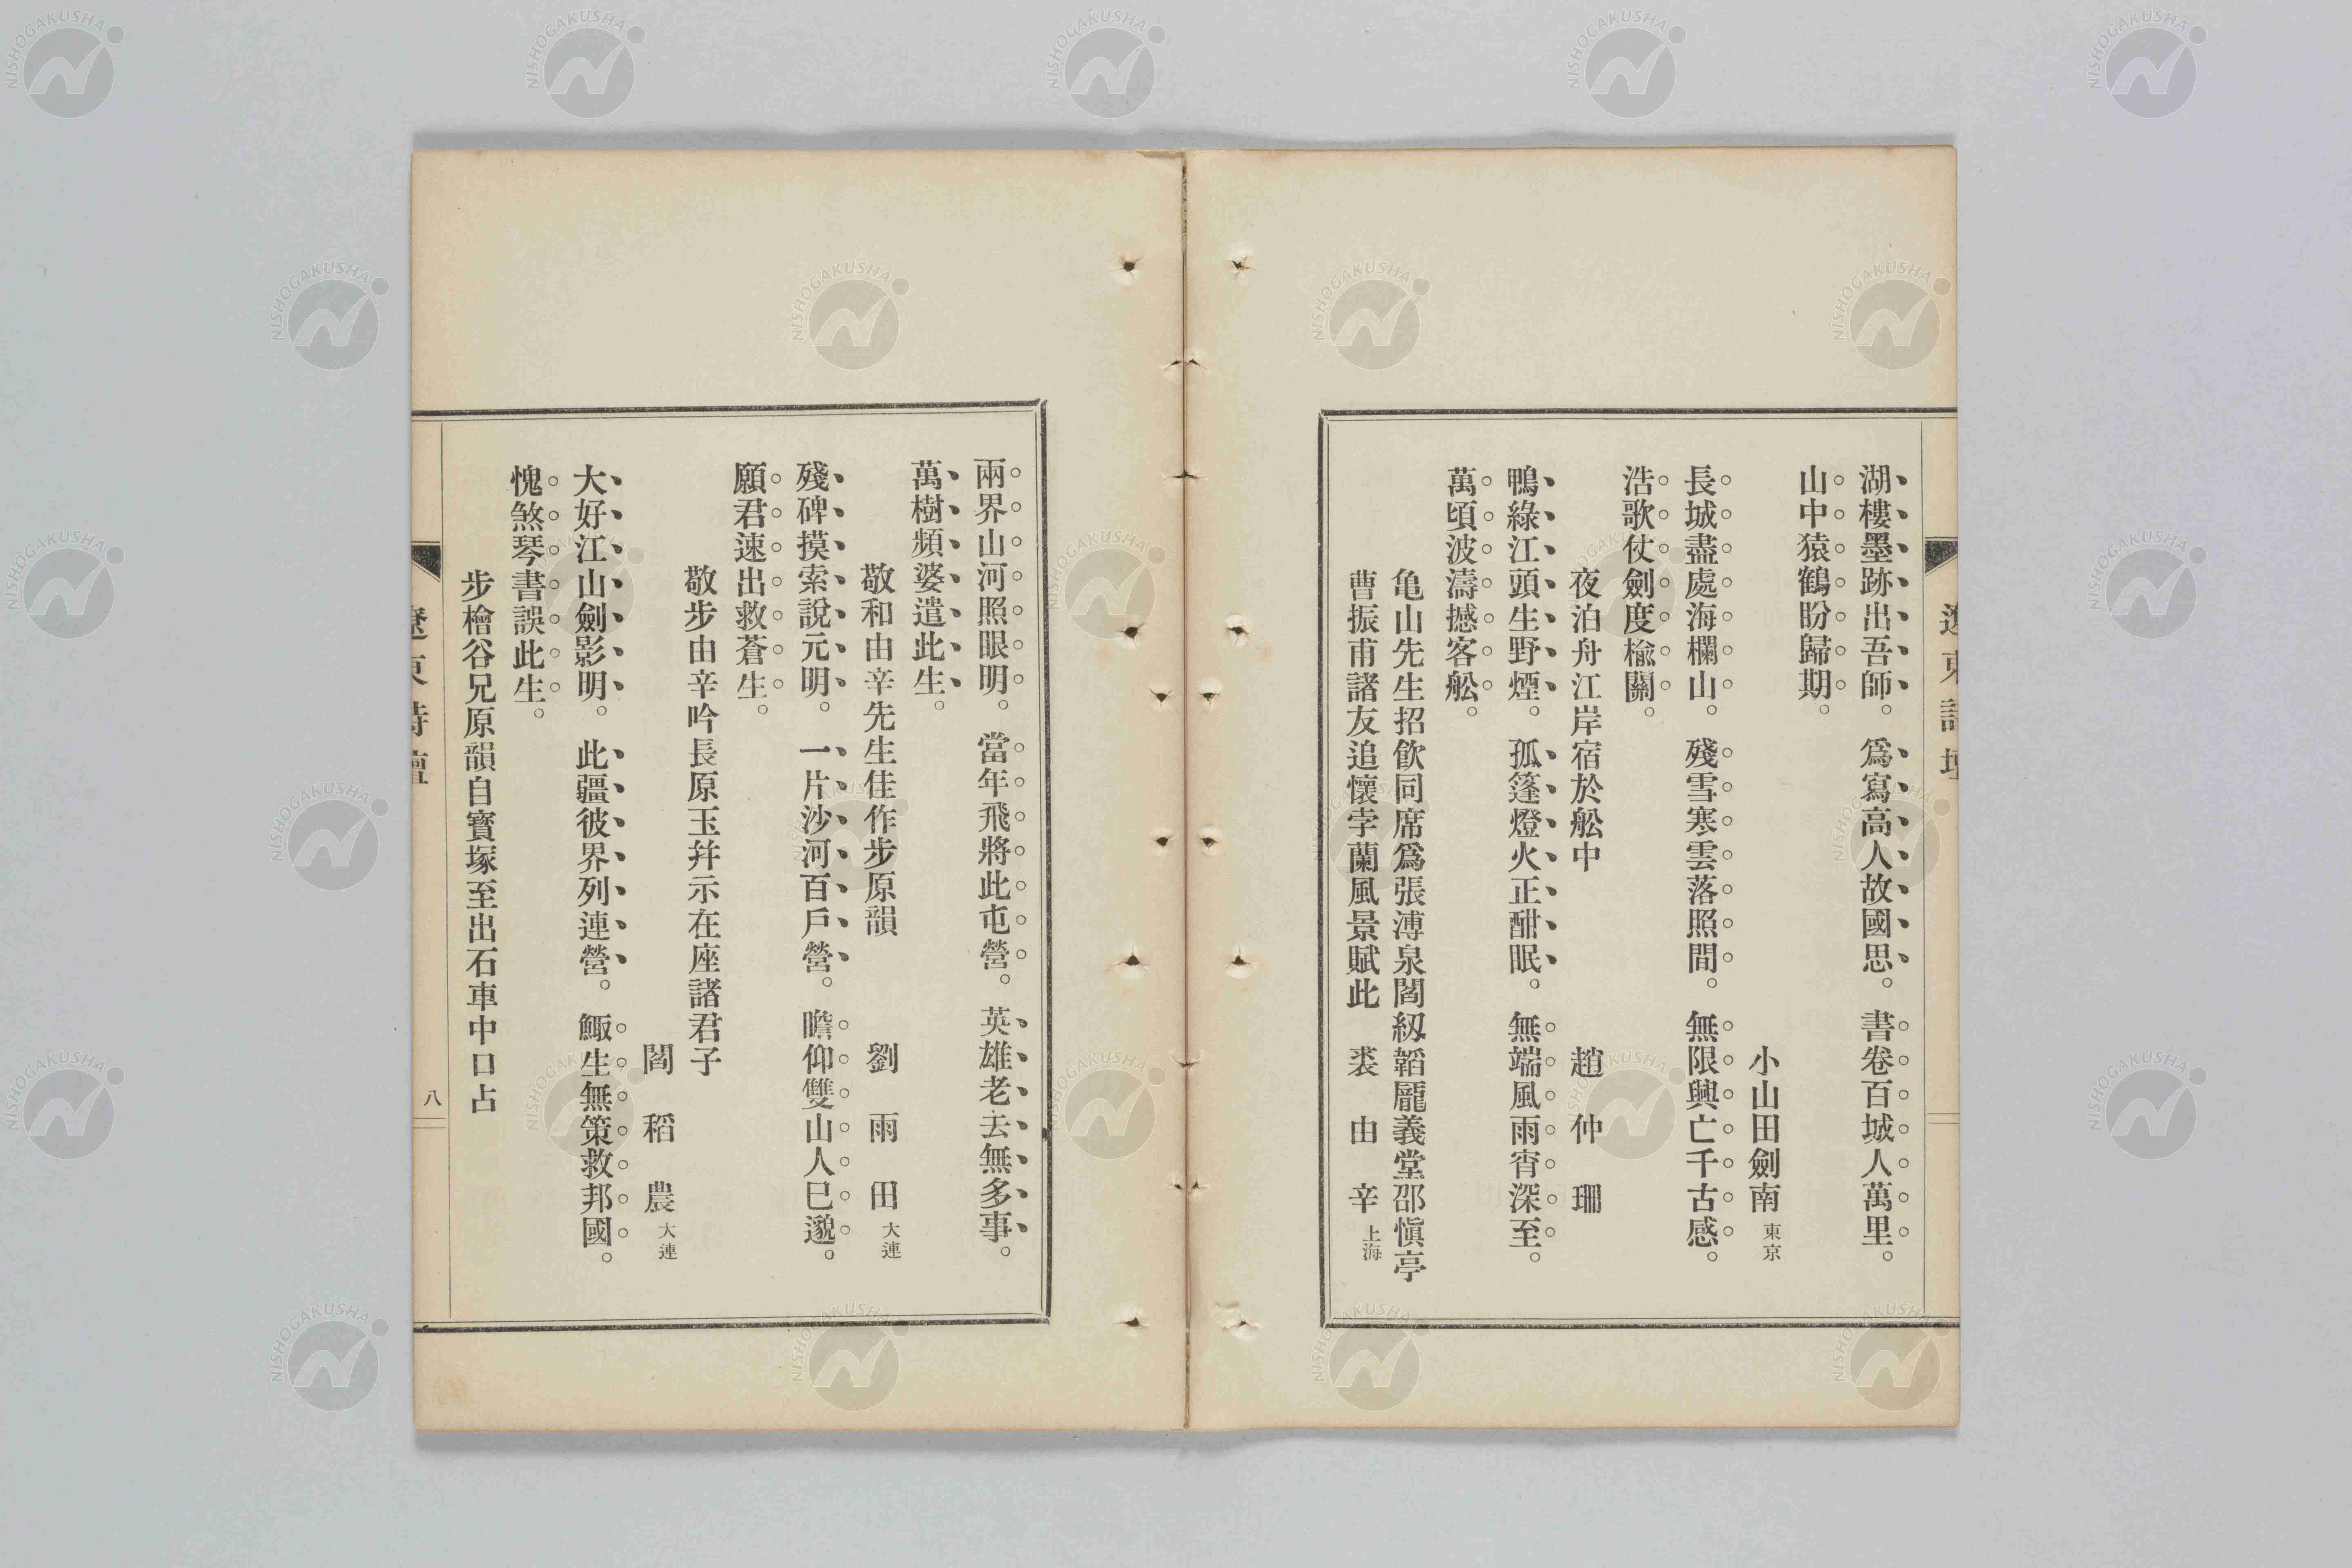 遼東詩壇
湖樓墨跡出吾師。爲寫高人故國思。書卷百城人萬里。
山中猿鶴盼歸期。
小山田劍南 東京
長城盡處海欄山。殘雪寒雲落照間。無限興亡千古感。
浩歌仗劍度楡關。
夜泊舟江岸宿於舩中 趙仲珊
鴨綠江頭生野煙。孤篷燈火正酣眠。無端風雨宵深至。
萬頃波濤撼客舩。
亀山先生招飮同席爲張溥泉閻紉韜龎義堂邵愼亭
曹振甫諸友追懷孛蘭風景賦此 裘由辛 上海
兩界山河照眼明。當年飛將此屯營。英雄老去無多事。
萬樹頻婆遣此生。
敬和由辛先生佳作步原韻 劉雨田 大連
殘碑摸索說元明。一片沙河百戶營。瞻仰雙山人已邈。
願君速出救蒼生。
敬步由辛吟長原玉幷示在座諸君子
閻稻農 大連
大好江山劍影明。此疆彼界列連營。鯫生無策救邦國。
愧煞琴書誤此生。
步檜谷兄原韻自寶塚至出石車中口占
遼東詩壇
八
NISHOGAKUSHA